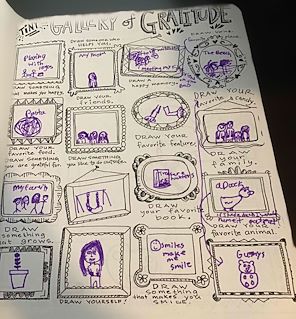 TINI
GALLERY of GRATITUDE
DRAW SOMEONE WHO
HELPS YOU.
Playing
with
My Parents
The Beach
DRAW SOMETHING
that makes you happy.
DRAW
your friends.
DRAW A
happy memory
DRAW YOUR
favorite candy.
Pasta
DRAW YOUR
favorite food.
DRAW SOMETHING
you are grateful for.
DRAW SOMETHING
you like to do outside.
DRAW YOUR
favorite feature.
DRAW
your
family.
My Family
a Duck
DRAW
something
that grows.
DRAW
your favorite
book.
DRAW YOUR
favorite animal.
smiles
make
me
smile
Gummys
DRAW YOURSELF!
DRAW
something
that makes you
SMILE.